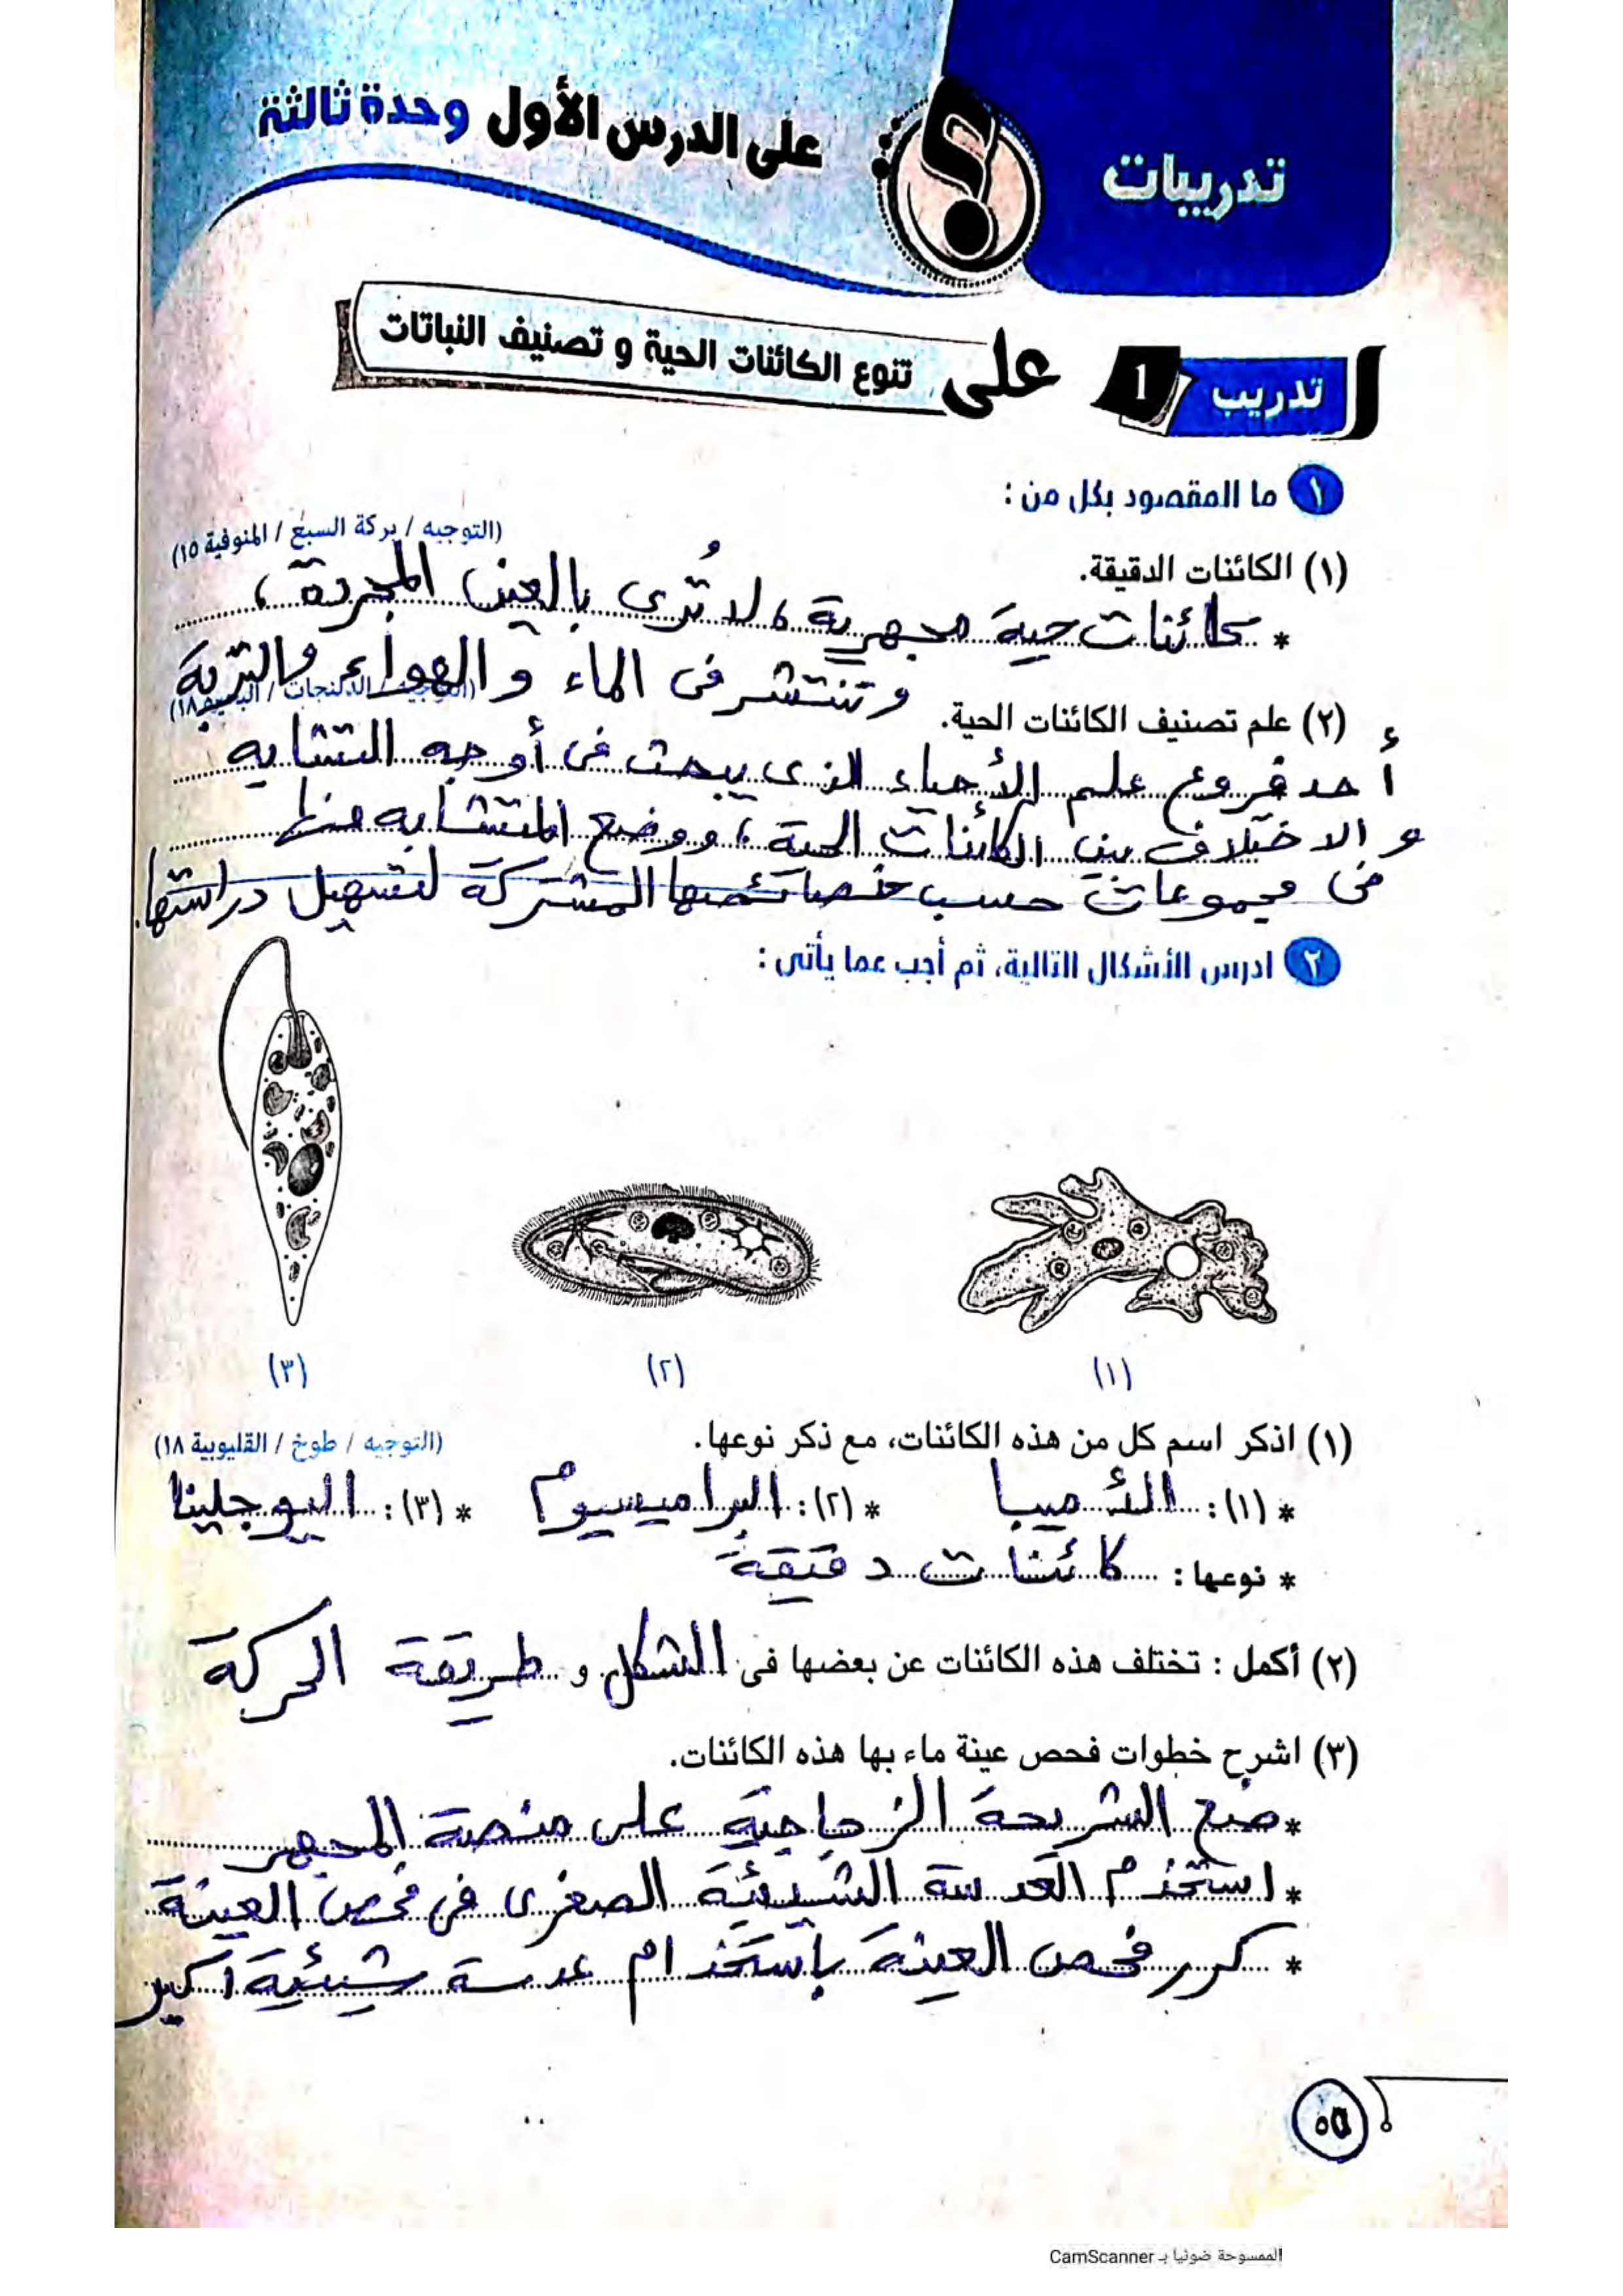 تدريبات
على الدرس الأول وحدة ثالثة
تدريب 1 على تنوع الكائنات الحية و تصنيف النباتات
١ ما المقصود بكل من :
(١) الكائنات الدقيقة. (التوجيه / بركة السبع / المنوفية ١٥)
* كائنات حية مجهرية، لا تُرى بالعين المجردة،
وتنتشر فى الماء والهواء والتربة
(٢) علم تصنيف الكائنات الحية. (الدلنجات / ١٨)
أحد فروع علم الأحياء الذى يبحث فى أوجه التشابه
والاختلاف بين الكائنات الحية، ووضع المتشابه منها
فى مجموعات حسب خصائصها المشتركة لتسهيل دراستها.
٢ ادرس الأشكال التالية، ثم أجب عما يأتى :
(١) (٢) (٣)
(١) اذكر اسم كل من هذه الكائنات، مع ذكر نوعها. (التوجيه / طوخ / القليوبية ١٨)
* (١): الأميبا * (٢): البراميسيوم * (٣): اليوجلينا
* نوعها: كائنات دقيقة
(٢) أكمل : تختلف هذه الكائنات عن بعضها فى الشكل و طريقة الحركة
(٣) اشرح خطوات فحص عينة ماء بها هذه الكائنات.
* ضع الشريحة الزجاجية على منصة المجهر
* استخدم العدسة الشيئية الصغرى فى فحص العينة
* كرر فحص العينة بأستخدام عدسة شيئية أكبر
٥٥
الممسوحة ضوئيا بـ CamScanner